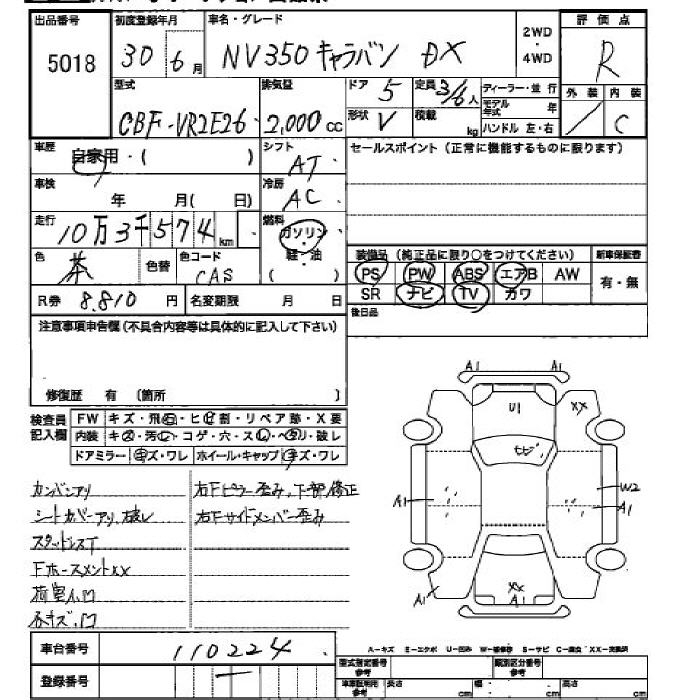 出品番号 初度登録年月 車名・グレード 2WD・4WD 評価点
5018 30 6月 NV350 キャラバン DX R
型式 排気量 ドア 5 定員 3/6人 ディーラー・並行 外装 内装
CBF-VR2E26 2,000cc 形状 V 積載 kg モデル年式 年 ハンドル 左・右 / C
車歴 自家用・( ) シフト AT セールスポイント(正常に機能するものに限ります)
車検 年 月( 日) 冷房 AC
走行 10万3千574km 燃料 ガソリン・軽・油 ( )
色 茶 色替 色コード CAS 装備品(純正品に限り○をつけてください) 新車保証書
PS PW ABS エアB AW 有・無
R券 8,810円 名変期限 月 日 SR ナビ TV カワ
注意事項申告欄(不具合内容等は具体的に記入して下さい) 後日品
修復歴 有 (箇所 )
検査員記入欄 FW キズ・飛石・ヒビ割・リペア跡・X要
内装 キズ・汚レ・コゲ・穴・スレ・ヘタリ・破レ
ドアミラー キズ・ワレ ホイール・キャップ キズ・ワレ
A1 A1
U1 XX
W2
A1 A1
XX
A1 A1
カンバンアリ 右Fピラー歪み、下部修正
シートカバーアリ、破レ 右Fサイドメンバー歪み
スタッドレスT
FホースメントXX
荷室A、凹
各キズ、凹
車台番号 110224
A-キズ E-エクボ U-凹み W-補修跡 S-サビ C-腐食 XX-交換済
登録番号 型式指定番号 参考 類別区分番号 参考
車車証用 参考 長さ cm 幅 cm 高さ cm